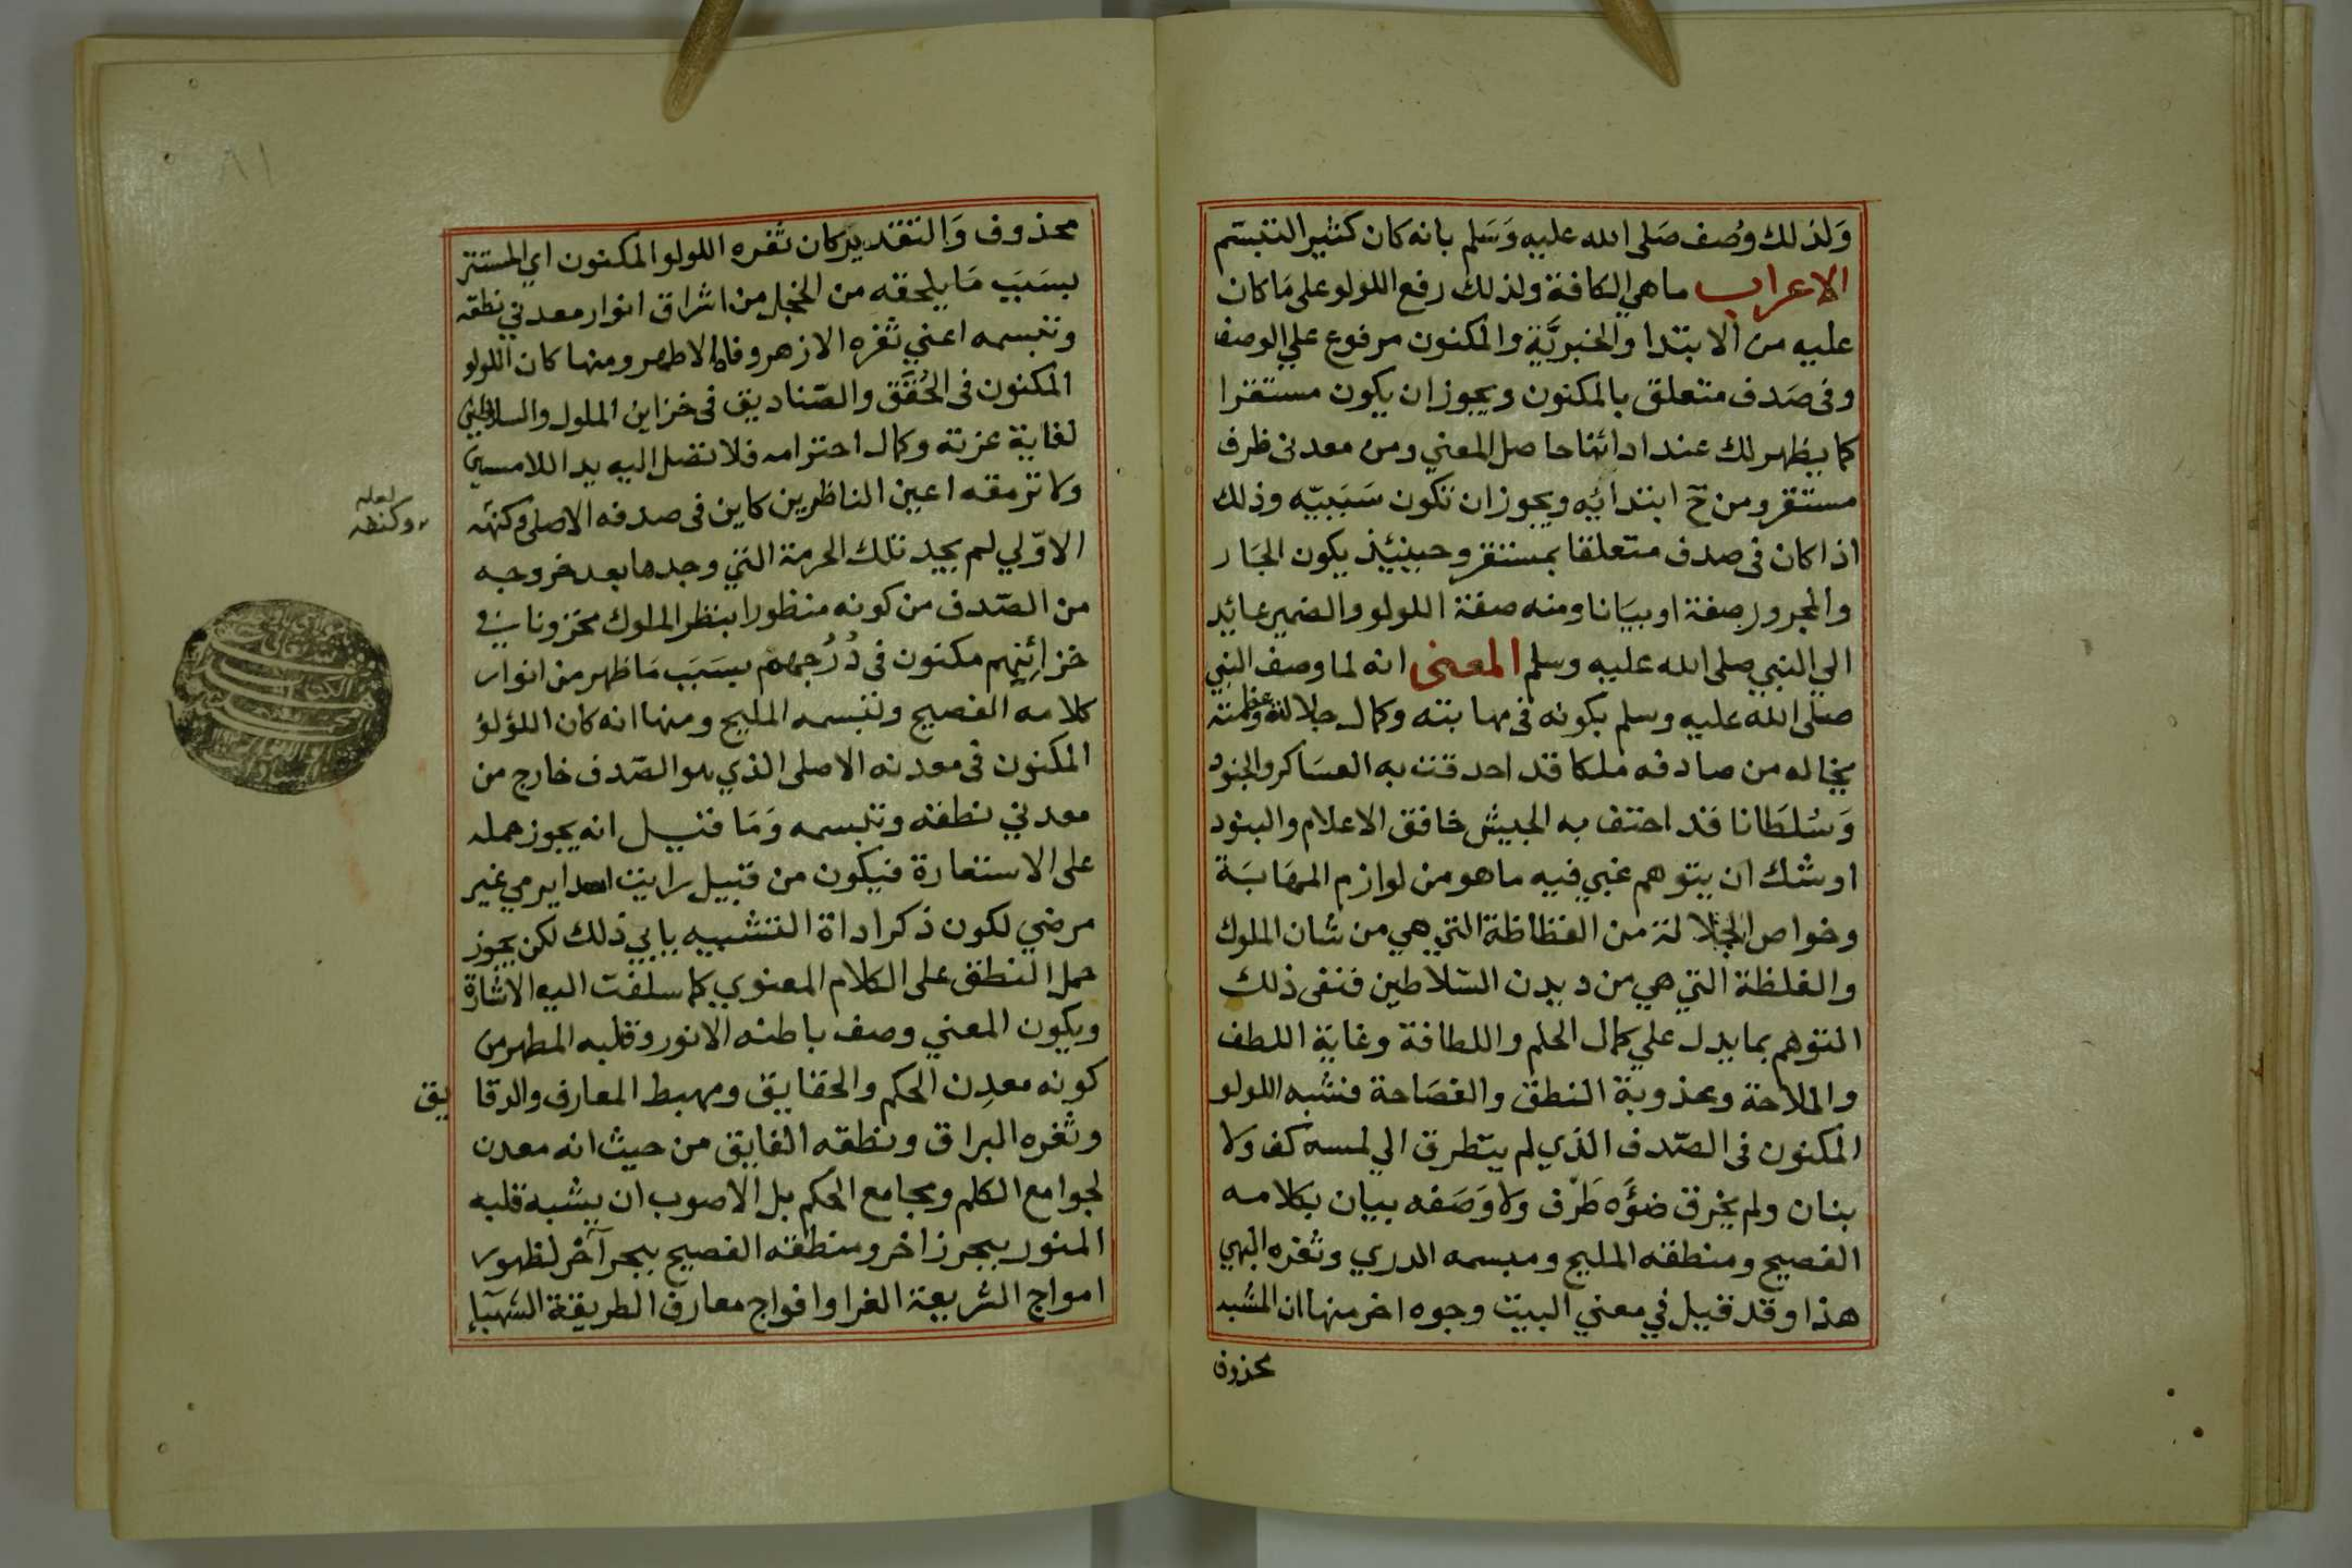 وَلذلك وُصف صَلى الله عليه وَسَلم بانه كان كثير التبسّم
الاعراب ما هي الكافة ولذلك رفع اللولو على مَا كان
عليه من الابتدا والخبريَّة والمكنون مرفوع علي الوصف
وفى صَدف متعلق بالمكنون ويجوز ان يكون مستقرا
كما يظهر لك عند ادائنا حاصل المعني ومن معدنى ظرف
مستقر ومن ح ابتدائيه ويجوز ان تكون سَبَبيّه وذلك
اذا كان فى صدف متعلقا بمستقر وحينئيذ يكون الجَار
والمجرور صفة او بيَانا ومنه صفة اللولو والضمير عائد
الي النبي صلى الله عليه وسلم المعنى انه لما وصف النبي
صلى الله عليه وسلم بكونه فى مهابته وكمال جلالته وعظمته
يخاله من صادفه ملكا قد احدقت به العسَاكر والجنود
وَسُلطَانا قد احتف به الجيش خافق الاعلام والبنود
اوشك ان يتوهم غبي فيه ما هو من لوازم المهَابَة
وخواص الجلالة من الفظاظة التي هي من شان الملوك
والغلظة التي هي من ديدن السّلاطين فنفى ذلك
التوهم بما يدل علي كمال الحلم واللطافة وغاية اللطف
والملاحة وعذوبة النطق والفصَاحة فشبه اللولو
المكنون فى الصّدف الذي لم يتطرق الي لمسه كف ولا
بنان ولم يخرق ضوَّه طَرْف ولا وَصَفه بيان بكلامه
الفصيح ومنطقه المليح ومبسمه الدري وثغره البهي
هذا وقد قيل في معني البيت وجوه اخر منها ان المشبه
محذوف
محذوف وَالتقدير كان ثغره اللولو المكنون اي المستتر
بسَبَب مَا يلحقه من الخجل من اشراق انوار معدني نطقه
وتبسمه اعني ثغره الازهر وفاه الاطهر ومنها كان اللولو
المكنون فى الحُقَق والصّناديق فى خزاين الملوك والسلاطين
لغاية عزته وكمال احترامه فلا تصل اليه يد اللامسين
ولا ترمقه اعين الناظرين كاين فى صدفه الاصلي وكنهه
لعله
وكنطه
الاوّلي لم يجد تلك الحرمة التي وجدها بعد خروجه
من الصّدف من كونه منظورا بنظر الملوك مخزونا في
خزائنهم مكنون فى دُرُجهم بسَبَب مَا ظهر من انوار
كلامه الفصيح وتبسمه المليح ومنها انه كان اللؤلؤ
المكنون فى معدنه الاصلى الذي هو الصّدف خارج من
معدني نطقه وتبسمه وَمَا قيل انه يجوز حمله
على الاستعارة فيكون من قبيل رايت اسدا يرمي غير
مرضي لكون ذكر اداة التشبيه يابي ذلك لكن يجوز
حمل النطق على الكلام المعنوي كما سلفت اليه الاشارة
ويكون المعني وصف باطنه الانور وقلبه المطهر من
كونه معدِن الحكم والحقايق ومهبط المعارف والدقايق
وثغره البراق ونطقه الفايق من حيث انه معدن
لجوامع الكلم ومجامع الحكم بل الاصوب ان يشبه قلبه
المنور ببحر زاخر ومنطقه الفصيح ببحر آخر لظهور
امواج الشريعة الغرا وافواج معارف الطريقة الشهبآء
٨١